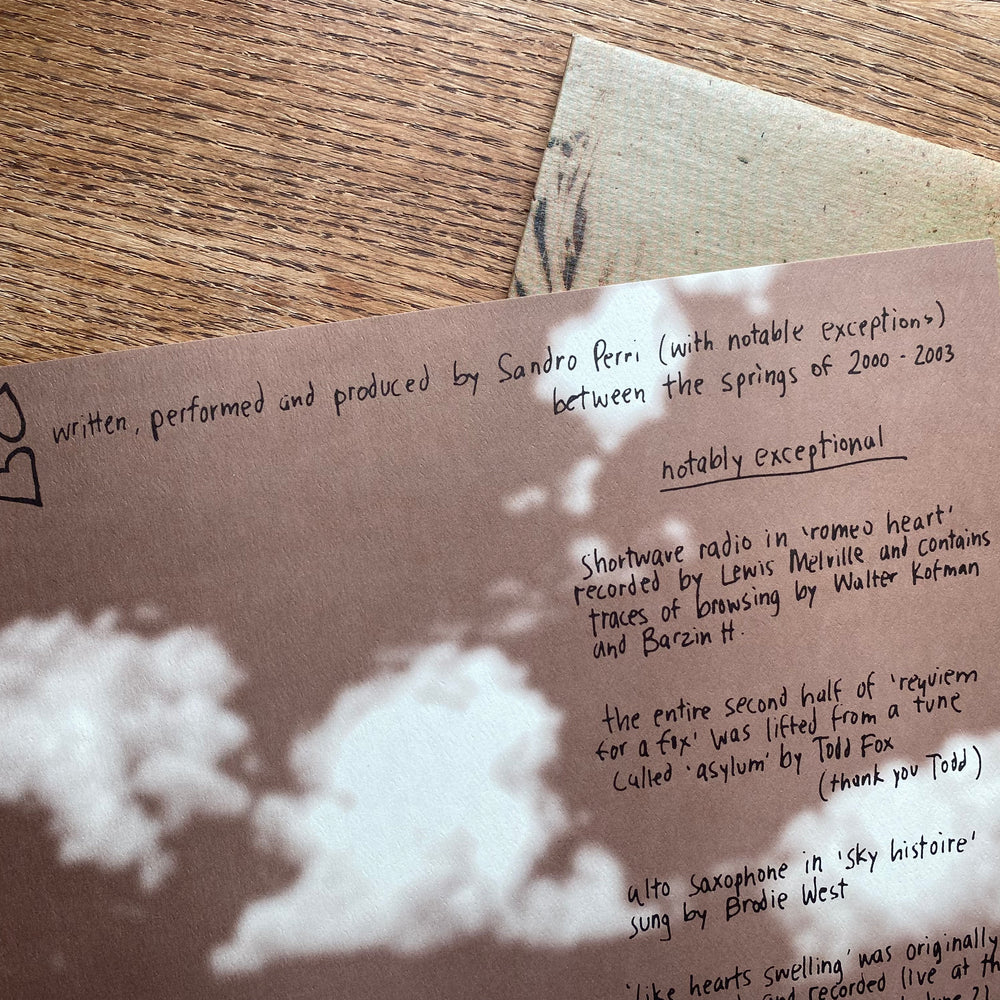 written, performed and produced by Sandro Perri (with notable exceptions)
between the springs of 2000 - 2003
notably exceptional
shortwave radio in 'romeo heart'
recorded by Lewis Melville and contains
traces of browsing by Walter Kofman
and Barzin H.
the entire second half of 'requiem
for a fox' was lifted from a tune
called 'asylum' by Todd Fox
(thank you Todd)
alto saxophone in 'sky histoire'
sung by Brodie West
'like hearts swelling' was originally
and recorded live at th